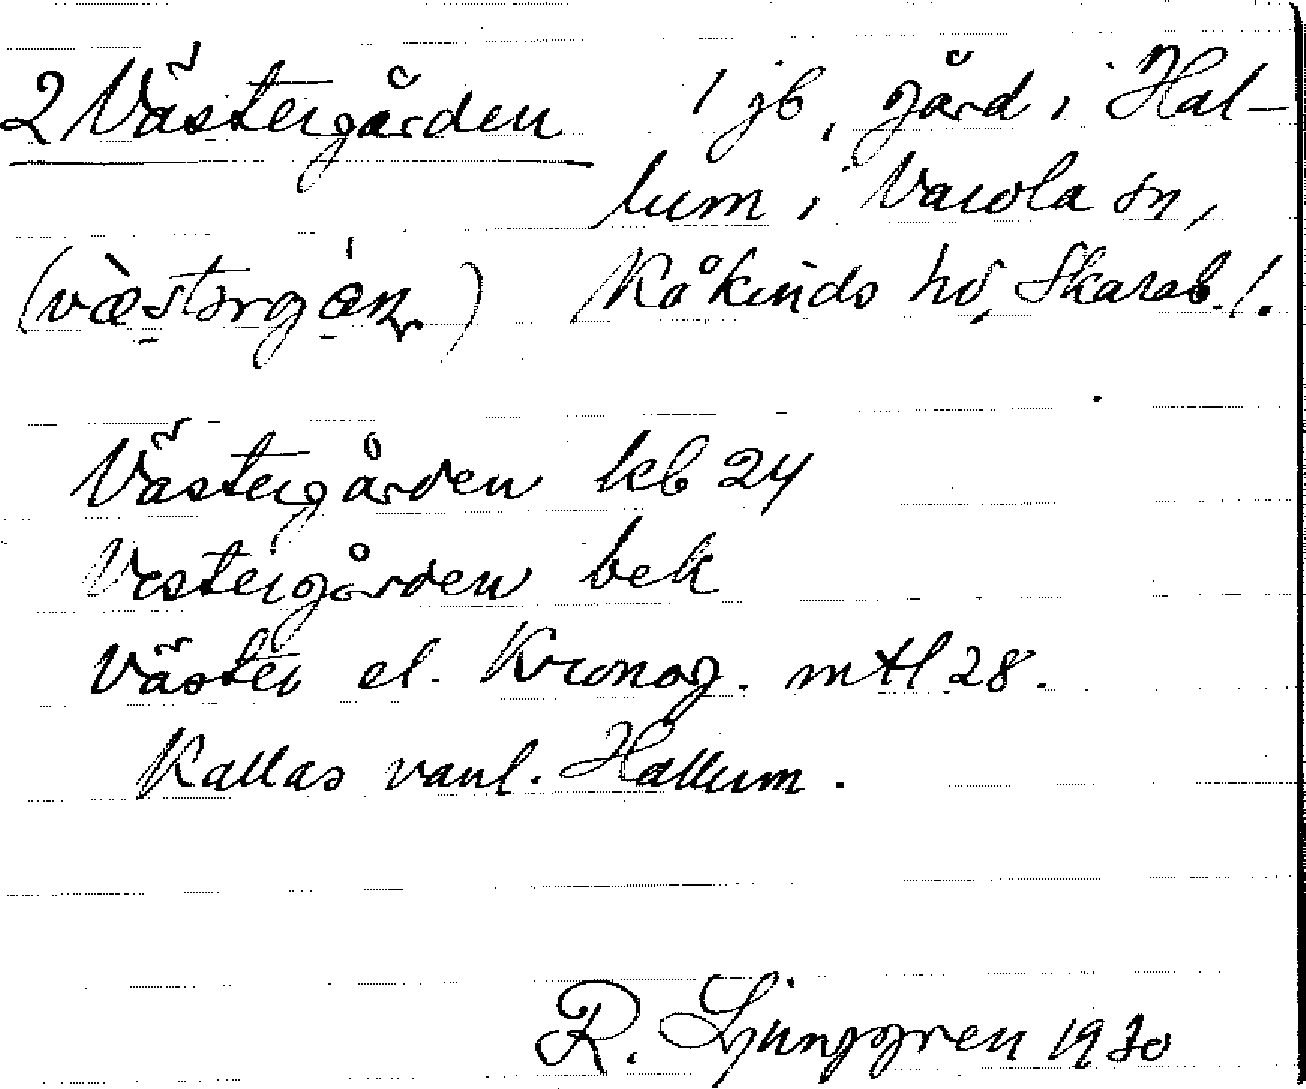 2 Västergården 1 jb, gård i Hal-
lum i Varola sn,
(væ̀stərgán) Kåkinds hd, Skarab. l.
Västergården kb 24
Vestergården bek
Väster el. Kronog. mtl 28.
Kallas vanl. Hallum.
R. Ljunggren 1930